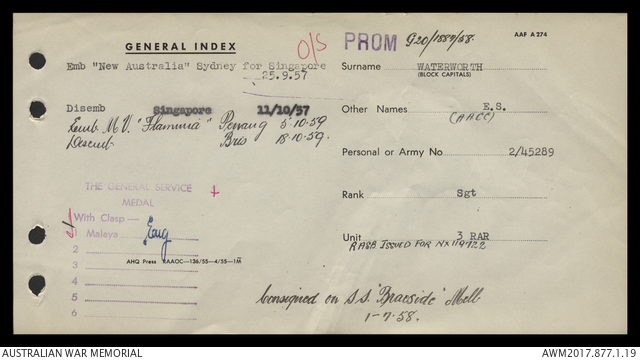 GENERAL INDEX
O/S
PROM G20/1889/58.
AAF A 274
Emb "New Australia" Sydney for Singapore
25.9.57
Surname WATERWORTH
(BLOCK CAPITALS)
Disemb Singapore 11/10/57
Emb. M.V. "Flaminia" Penang 5.10.59
Disemb Bris 18.10.59.
Other Names E.S.
(AACC)
Personal or Army No 2/45289
Rank Sgt
Unit 3 RAR
RASB ISSUED FOR NX119722
THE GENERAL SERVICE
MEDAL
With Clasp —
1 Malaya
2
3
4
5
6
AHQ Press RAAOC—136/55—4/55—1M
Consigned on S.S. "Braeside" Melb
1-7-58.